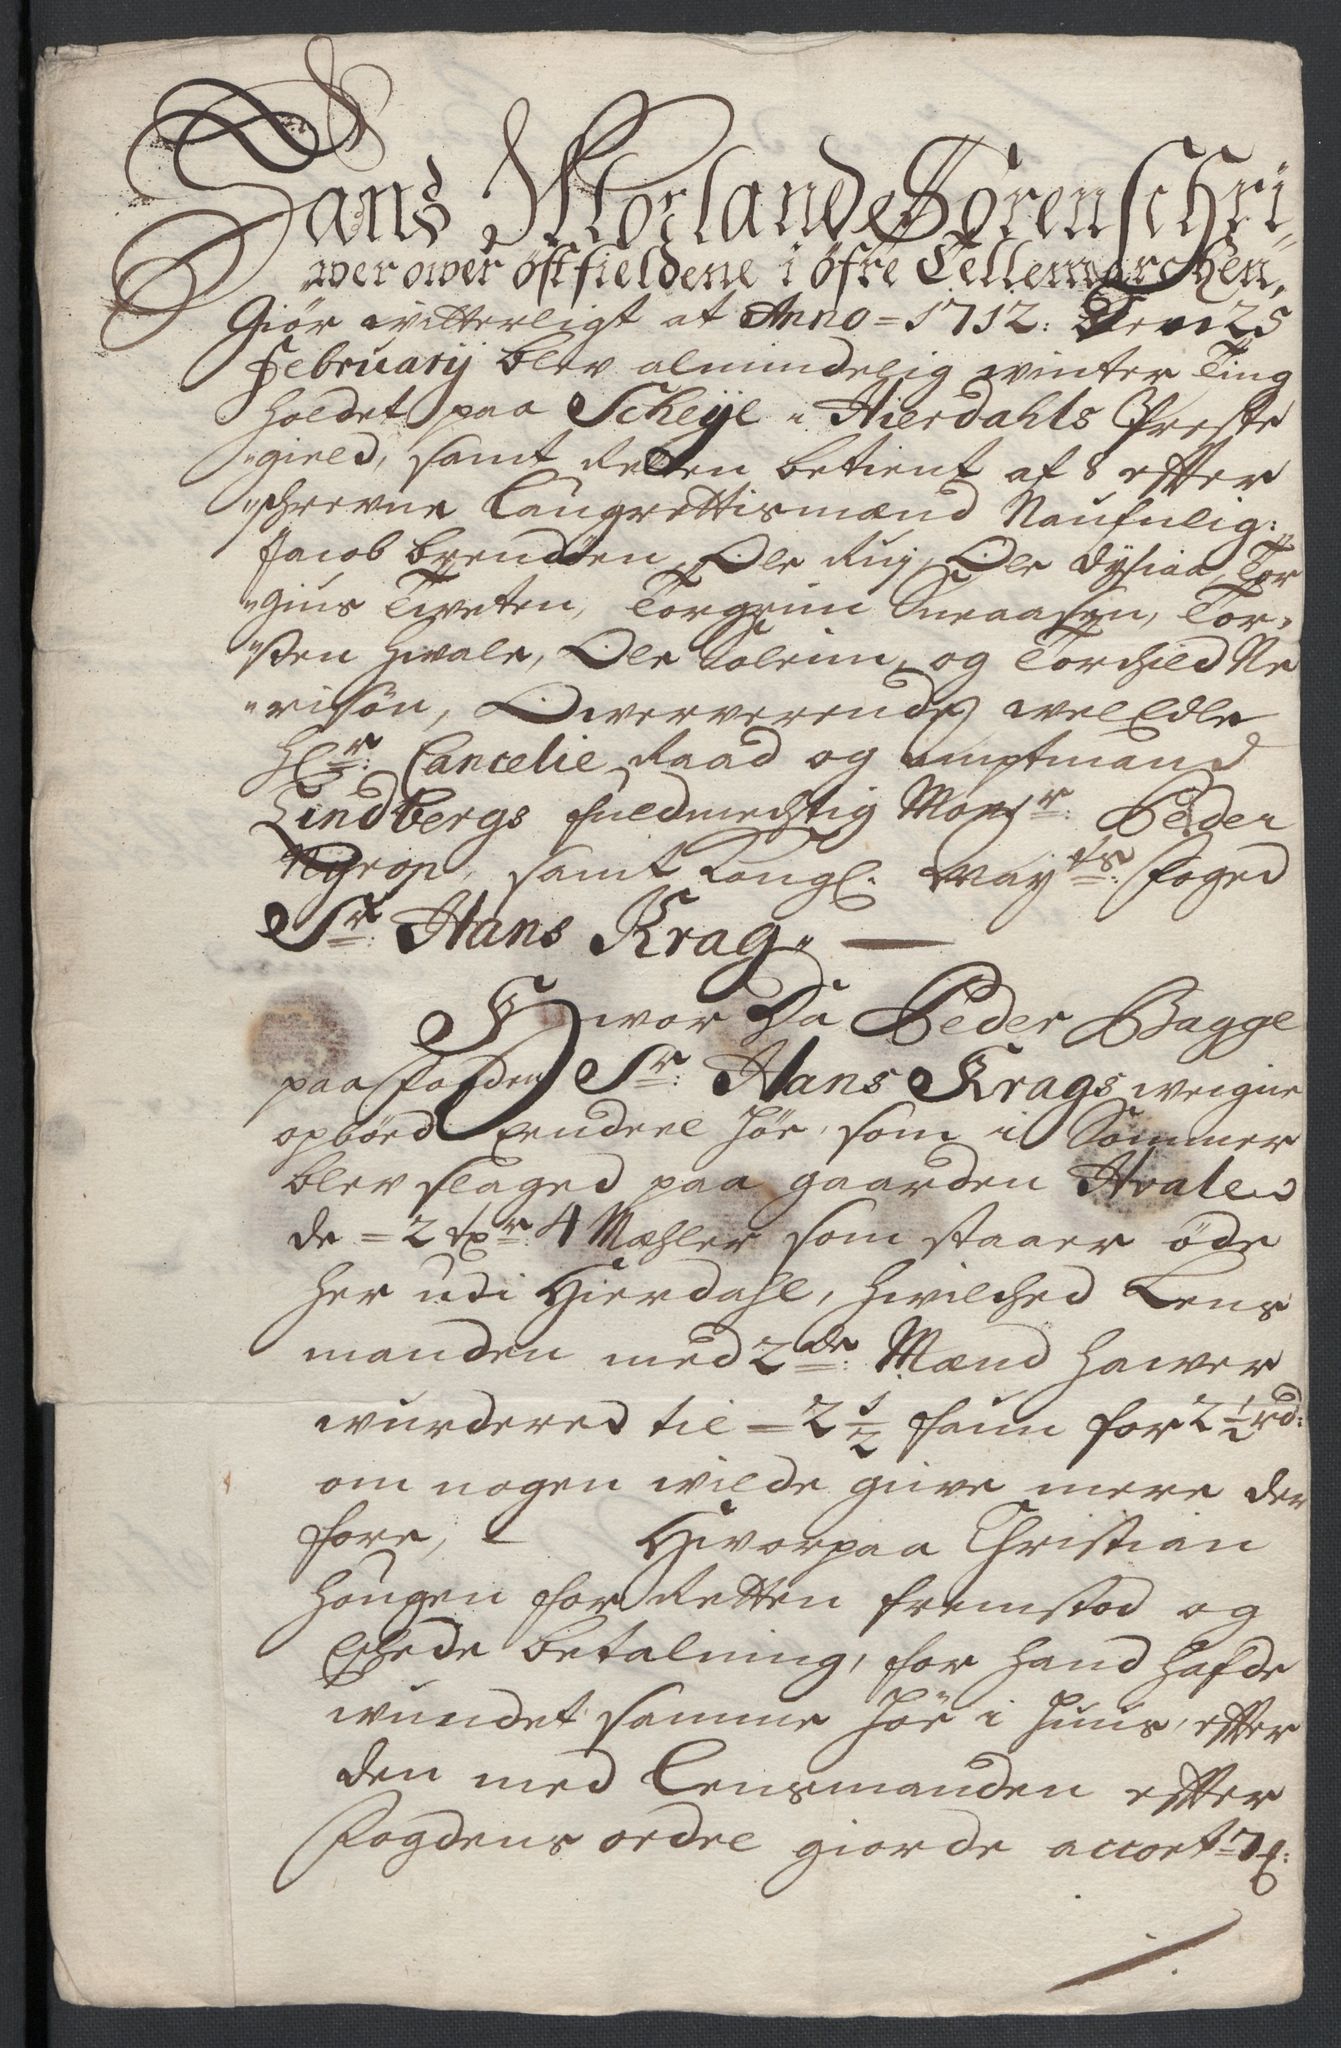 Hans Morland Sorenschri„
wer ower östfieldene i öfre Tellemarchen,
Giör witterligt at Anno = 1712: Den 25
February blev almindelig winter Ting
holdet paa Scheye i Hierdahls Preste
„gield, samt Retten betient af 8 efter
„schrevne Laugrettismænd Naufnlig:
Jacob brenden, Ole Ruy, Ole Dysiaa, Tor
„gius Tveten, Torgrim Sneaasen, Tor„
„sten Hwale, Ole Soleim, og Torchild Ne
„risön, Owerverende, wel Edle
Hr: Cancelie Raad og amptmand
Lindbergs fuldmechtig Monsr: Peder
Nyrop, samt Kongl. Mayts: foged
Sr: Hans Krag„ —
Hwor Da Peder Bagge
paa fogden Sr: Hans Krags weigne
opböed höe, som i Sommer
blev slaged paa gaarden Hvale
de = 2 tpr: 4 Mæhler som staaer öde
her udi Hierdahl, hwilched Lens
manden med 2de: Mænd hawer
wurdered til = 2 1/2 faun for 2 1/2 rd:
om nogen wilde giwe mere der
fore, - Hworpaa Christian
Hougen for Retten fremstod og
Eschede betalning, for hand hafde
wundet samme höe i huus, efter
den med Lensmanden efter
fogdens ordre giorde accort